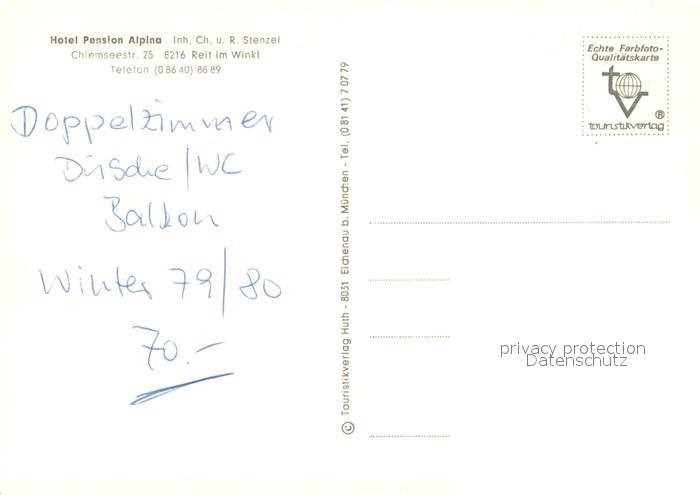 Hotel Pension Alpina Inh. Ch. u. R. Stenzel
Chiemseestr. 25 8216 Reit im Winkl
Telefon (0 86 40) 88 89
Doppelzimmer
Dusche/WC
Balkon
Winter 79/80
70.-
© Touristikverlag Huth - 8031 Eichenau b. München - Tel. (0 81 41) 7 07 79
Echte Farbfoto-
Qualitätskarte
tv ®
touristikverlag
privacy protection
Datenschutz